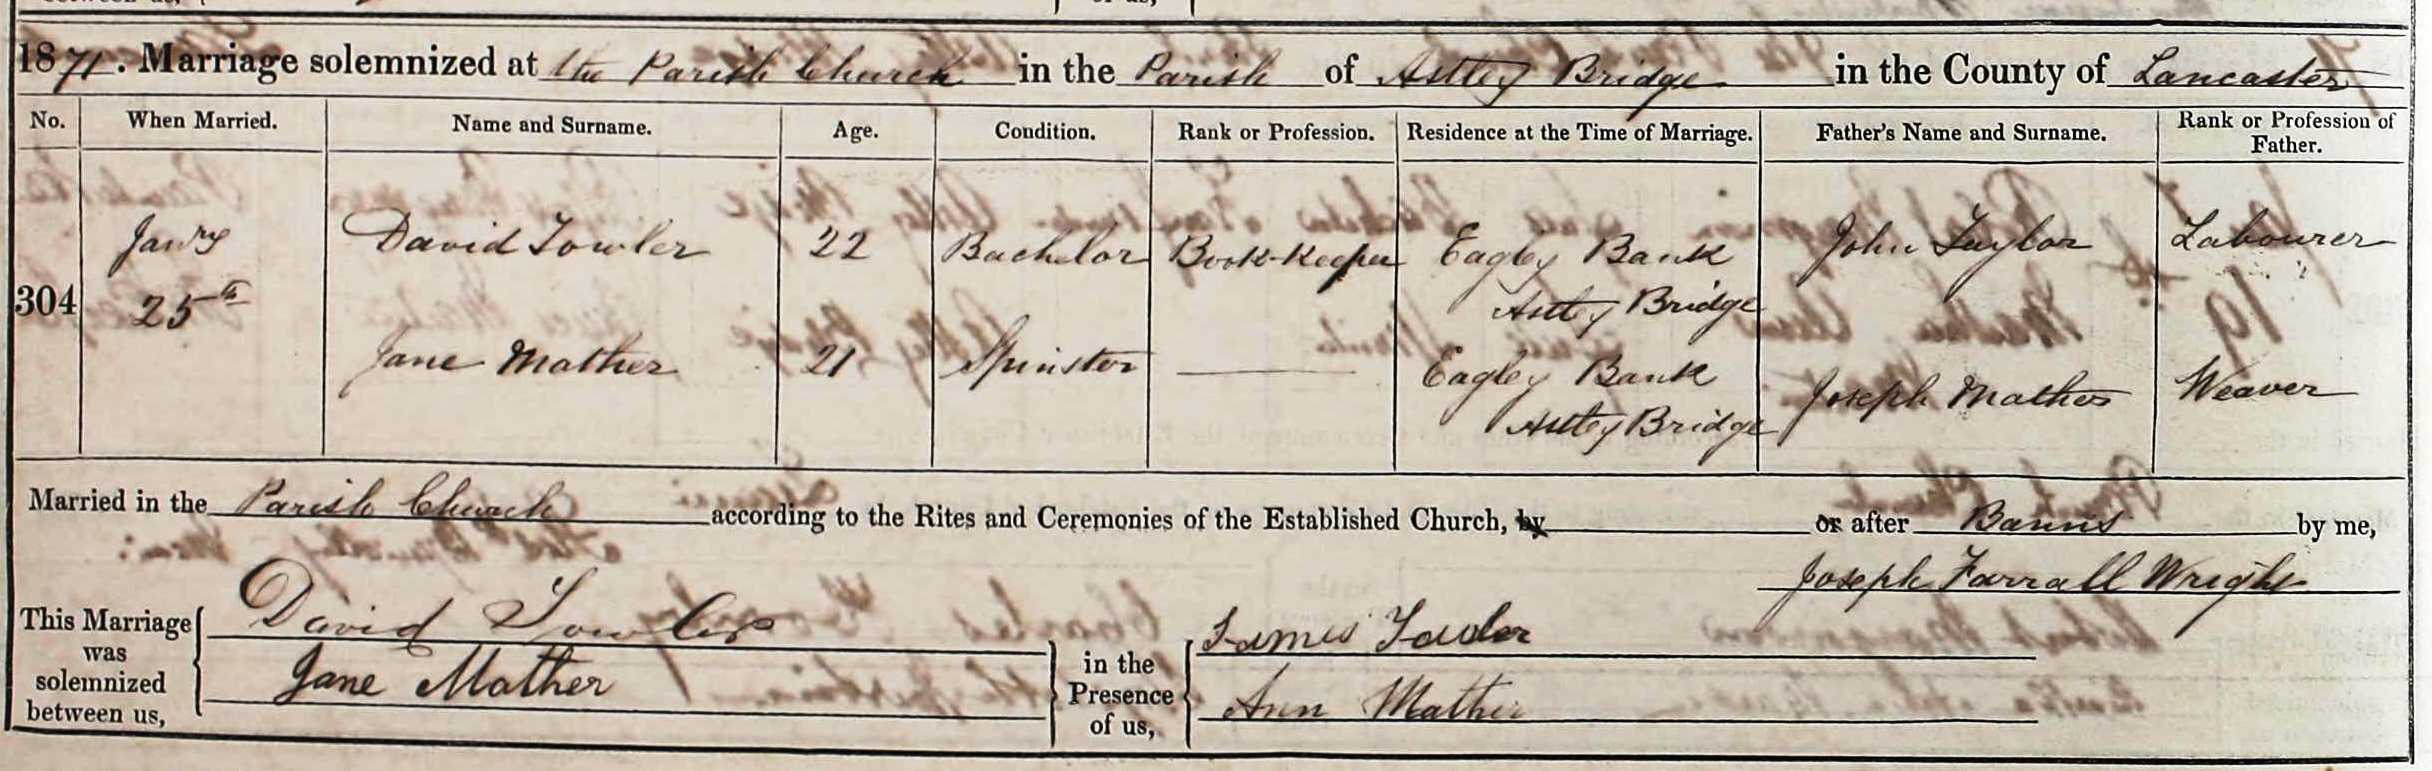 1871. Marriage solemnized at the Parish Church in the Parish of Astley Bridge in the County of Lancaster
No. When Married. Name and Surname. Age. Condition. Rank or Profession. Residence at the Time of Marriage. Father's Name and Surname. Rank or Profession of Father.
304 Janry 25th David Towler 22 Bachelor Book-Keeper Eagley Bank Astley Bridge John Taylor Labourer
Jane Mather 21 Spinster Eagley Bank Astley Bridge Joseph Mather Weaver
Married in the Parish Church according to the Rites and Ceremonies of the Established Church, by or after Banns by me,
Joseph Farrall Wright
This Marriage was solemnized between us, David Towler Jane Mather
in the Presence of us, James Towler Ann Mather